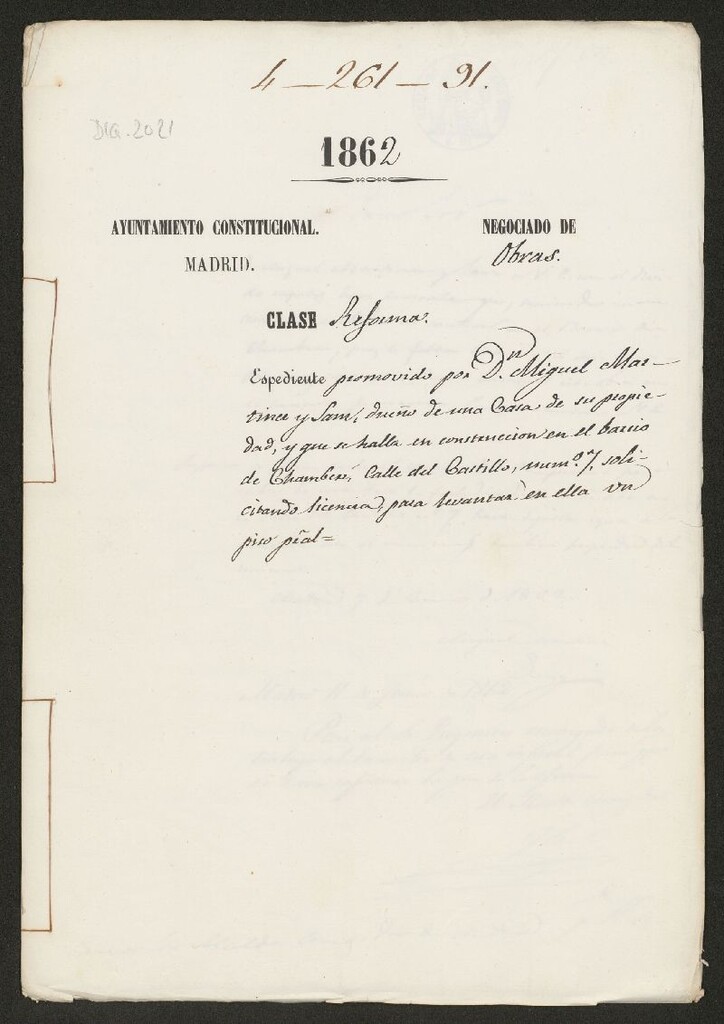 4 — 261 — 91.
DIG. 2021
1862
AYUNTAMIENTO CONSTITUCIONAL.
MADRID.
NEGOCIADO DE
Obras.
CLASE Reforma.
Espediente promovido por Dn Miguel Mar-
tinez y Sanz, dueño de una Casa de su propie-
dad, y que se halla en construccion en el barrio
de Chamberí, Calle del Castillo, num.o 7, soli-
citando licencia, para levantar en ella un
piso pral=